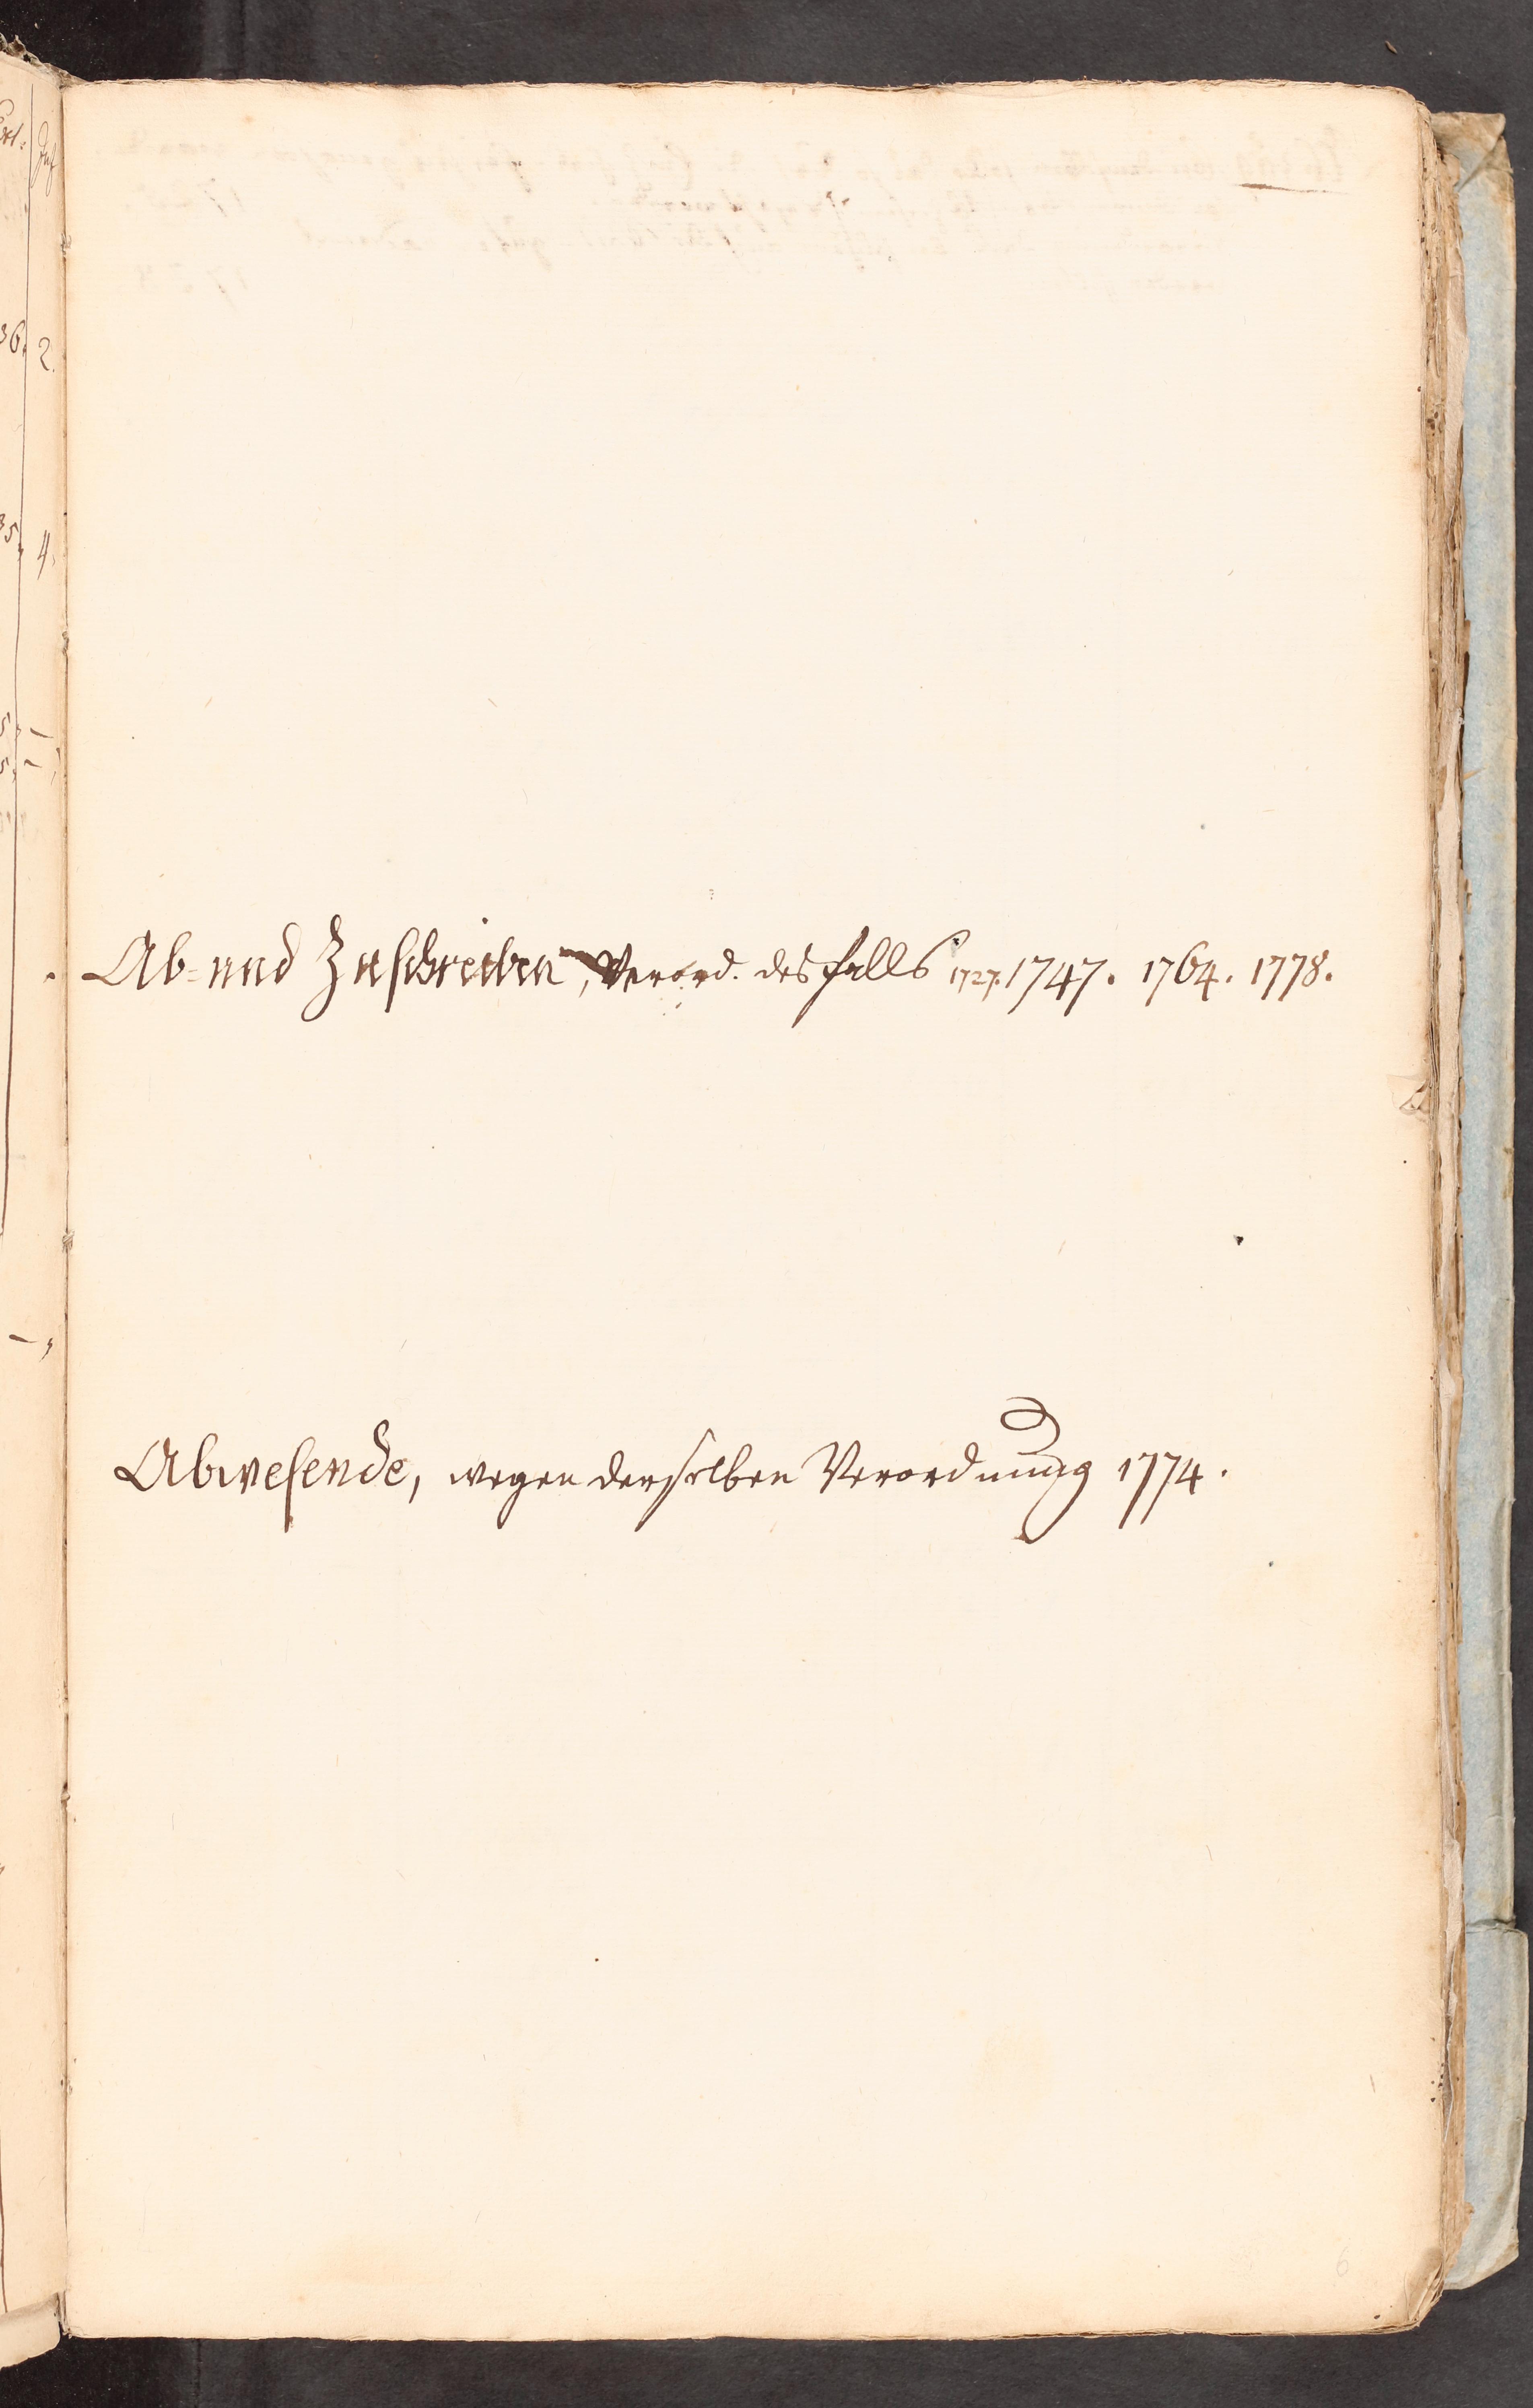 Ab- und Zuschreiben, Verord. desfalls 1727. 1747. 1764. 1778.
Abwesende, wegen derselben Verordnung 1774.
6